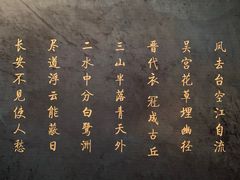 凤去台空江自流
吴宫花草埋幽径
晋代衣冠成古丘
三山半落青天外
二水中分白鹭洲
尽道浮云能蔽日
长安不见使人愁